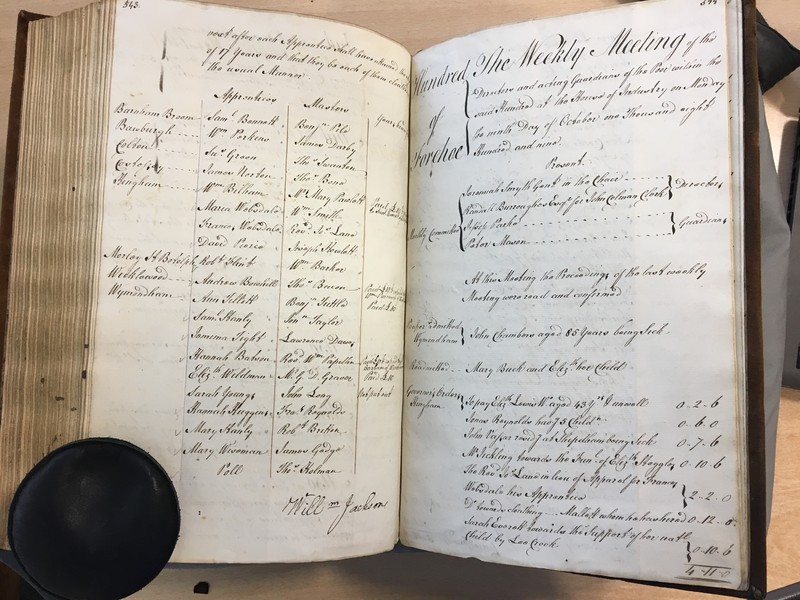 543.
next after each Apprentice shall have attained the
of 17 Years and that they be each of them cloathed
the usual Manner
Apprentices
Masters
Barnham Broom Sam.l Bennett Benj.n
Bawburgh Wm Perkins James Darby
Colton Green Tho.s Swanton
Costessy James Norton Tho.s Bond
Hingham Wm Bilham Mr. Mary
Maria Wm Smith
Frances Rev.d Jn.o Land
David Pierce Joseph Howlett
Morley St Botolph Rob.t Flint Wm Barker
Wicklewood Andrew Tho.s Bacon
Wymondham Ann Tillett Benj.n Tuttle
Sam.l Hanly Jon.n Taylor
Jemima Tight Lawrence Dawes
Hannah Batson Rev.d Wm Papillon
Eliz.th Wildman Mr. G. D. Graver
Sarah Youngs John Long not put out
Hannah Huggins Fra.s Reynolds
Mary Hanly Rob.t Britten
Mary Wiseman James Gedge
Poll Tho.s Holman
Will.m Jackson
544
Hundred
of
Forehoe
The Weekly Meeting of the
Directors and acting Guardians of the Poor within the
said Hundred at the House of Industry on Monday
the ninth Day of October one Thousand eight
Hundred and nine.
Present
Jeremiah Smyth Gent in the Chair
Randall Burroughes Esq.r for John Colman Clerk
Directors
Weekly Committee
Jessop
Peter Mason
Guardians
At this Meeting the Proceedings of the last weekly
Meeting were read and confirmed
Paupers admitted
Wymondham
John Chambers aged 85 Years being Sick
Readmitted Mary Buck and Eliz.th her Child
Governors Orders
Hingham
To pay Eliz.th Lewis W.w aged 43 Y.rs unwell 0-2-6
Jonas Reynolds has 75 Child.n 0-6-0
John at Shipdham being Sick 0-7-6
Mr. Sickling towards the Fun.l of Eliz.th 0-10-6
The Rev.d Jn.o Land in lieu of Apparel for Frances
his Apprentice 2-2-0
D.o towards cloathing Mallett whom he has hired 0-12-0
Sarah Everett towards the Support of her nat.l
Child by Leo Crook 0-10-6
4-11-0